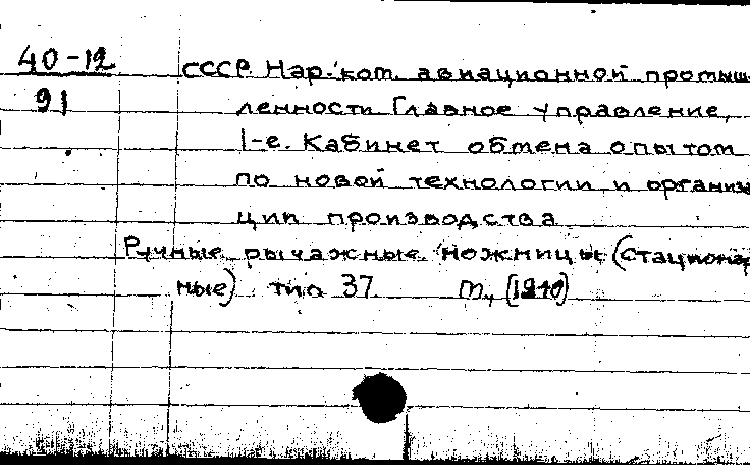 40-12
91
СССР. Нар. ком. авиационной промыш-
ленности Главное управление,
1-е. Кабинет обмена опытом
по новой технологии и организа
ции производства
Ручные рычажные ножницы (стационар
ные) тип 37. М, (1940)